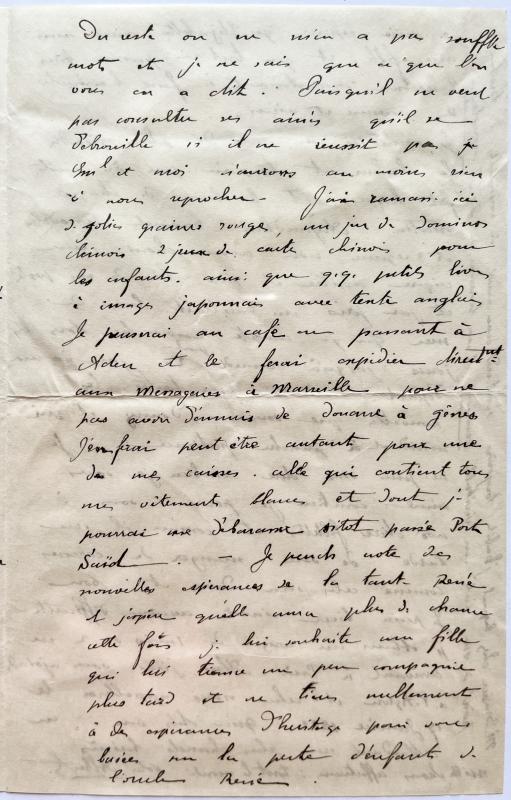 Du reste on ne m'en a pas soufflé
mot et je ne sais que ce que l'on
vous en a dit. Puisqu'il ne veut
pas consulter ses ainés qu'il se
débrouille si il ne réussit pas
et moi n'aurons au moins rien
à nous reprocher - J'ai ramassé ici
de jolies graines rouges, un jeu de dominos
chinois 2 jeux de carte chinois pour
les enfants. ainsi que q.q. petits livres
à images japonnais avec texte anglais
Je penserai au café en passant à
Aden et le ferai expédier direct.ent
aux Messageries à Marseille pour ne
pas avoir d'ennuis de douane à gênes
J'en ferai peut être autant pour une
de mes caisses. celle qui contient tous
mes vêtements blancs et dont je
pourrai me débarasser sitot passée Port
Saïd. - Je prends note des
nouvelles espérances de la tante Renée
et j'espère qu'elle aura plus de chance
cette fois je lui souhaite une fille
qui lui tienne un peu compagnie
plus tard et ne tiens nullement
à des espérances d'héritage pour vous
basées sur la perte d'enfants de
l'oncle René.